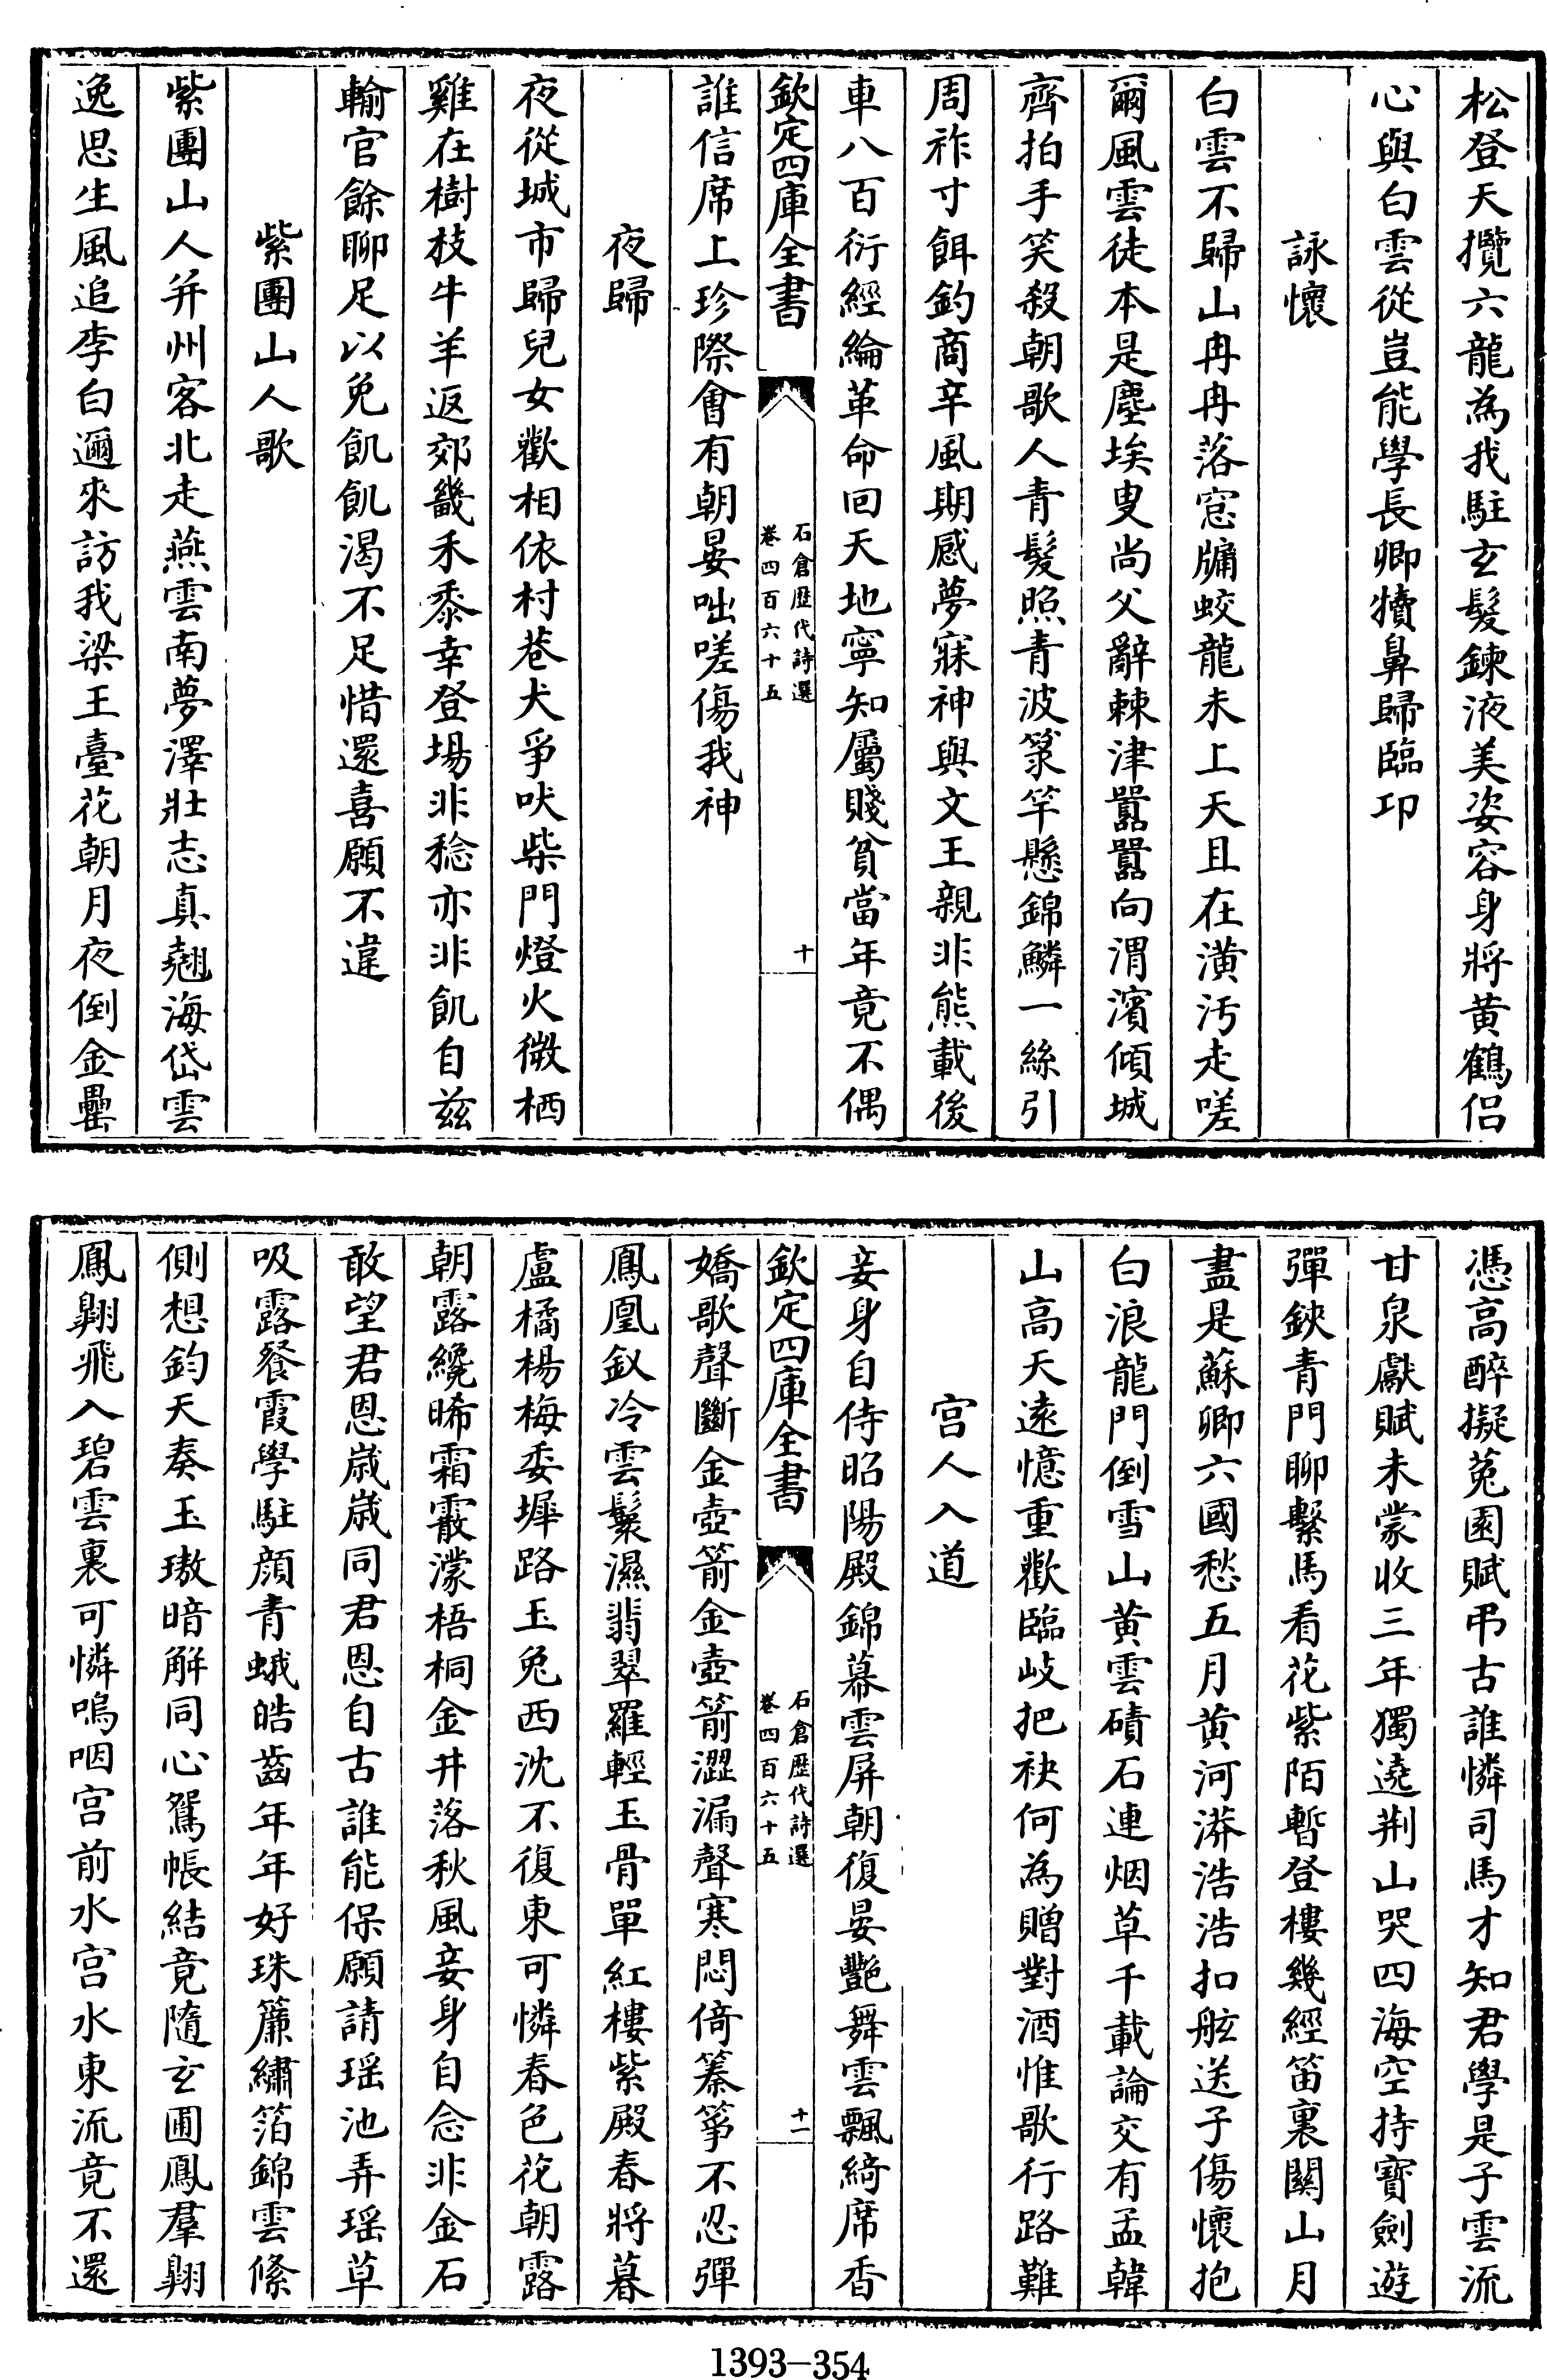 松登天攬六龍為我駐玄髮鍊液美姿容身將黄鶴侣
心與白雲從豈能學長卿犢鼻歸臨卭
詠懷
白雲不歸山冉冉落窓牗蛟龍未上天且在潢汚走嗟
爾風雲徒本是塵埃叟尚父辭棘津囂囂向渭濱傾城
齊拍手笑殺朝歌人青髮照青波篆竿懸錦鱗一絲引
周祚寸餌釣商辛風期感夢寐神與文王親非熊載後
車八百衍經綸革命回天地寧知屬賤貧當年竟不偶
欽定四庫全書
石倉歷代詩選
卷四百六十五
十
誰信席上珍際會有朝晏咄嗟傷我神
夜歸
夜從城市歸兒女歡相依村巷犬爭吠柴門燈火微栖
雞在樹枝牛羊返郊畿禾黍幸登場非稔亦非飢自兹
輸官餘聊足以免飢飢渴不足惜還喜願不違
紫團山人歌
紫團山人并州客北走燕雲南夢澤壯志真翹海岱雲
逸思生風追李白邇來訪我梁王臺花朝月夜倒金罍
憑高醉擬菟園賦弔古誰憐司馬才知君學是子雲流
甘泉獻賦未蒙收三年獨遶荆山哭四海空持寶劍遊
彈鋏青門聊繫馬看花紫陌暫登樓幾經笛裏關山月
盡是蘇卿六國愁五月黄河漭浩浩扣舷送子傷懷抱
白浪龍門倒雪山黄雲磧石連烟草千載論交有孟韓
山高天遠憶重歡臨岐把袂何為贈對酒惟歌行路難
宫人入道
妾身自侍昭陽殿錦幕雲屏朝復晏艷舞雲飄綺席香
欽定四庫全書
石倉歷代詩選
卷四百六十五
十一
嬌歌聲斷金壺箭金壺箭澀漏聲寒悶倚蓁箏不忍彈
鳳凰釵冷雲鬟濕翡翠羅輕玉骨單紅樓紫殿春將暮
盧橘楊梅委墀路玉兔西沈不復東可憐春色花朝露
朝露纔晞霜霰濛梧桐金井落秋風妾身自念非金石
敢望君恩歲歲同君恩自古誰能保願請瑶池弄瑶草
吸露餐霞學駐顔青蛾皓齒年年好珠簾繡箔錦雲絛
側想鈞天奏玉璈暗解同心鴛帳結竟隨玄圃鳳羣翺
鳳翺飛入碧雲裏可憐嗚咽宫前水宫水東流竟不還
1393-354